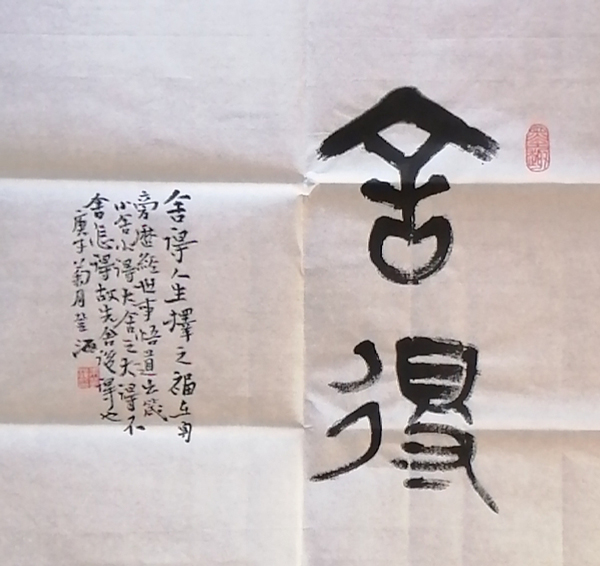 舍得
舍得人生择之福在身
旁历经世事悟道出哉
小舍小得大舍之大得不
舍怎得故先舍后得也
庚子菊月